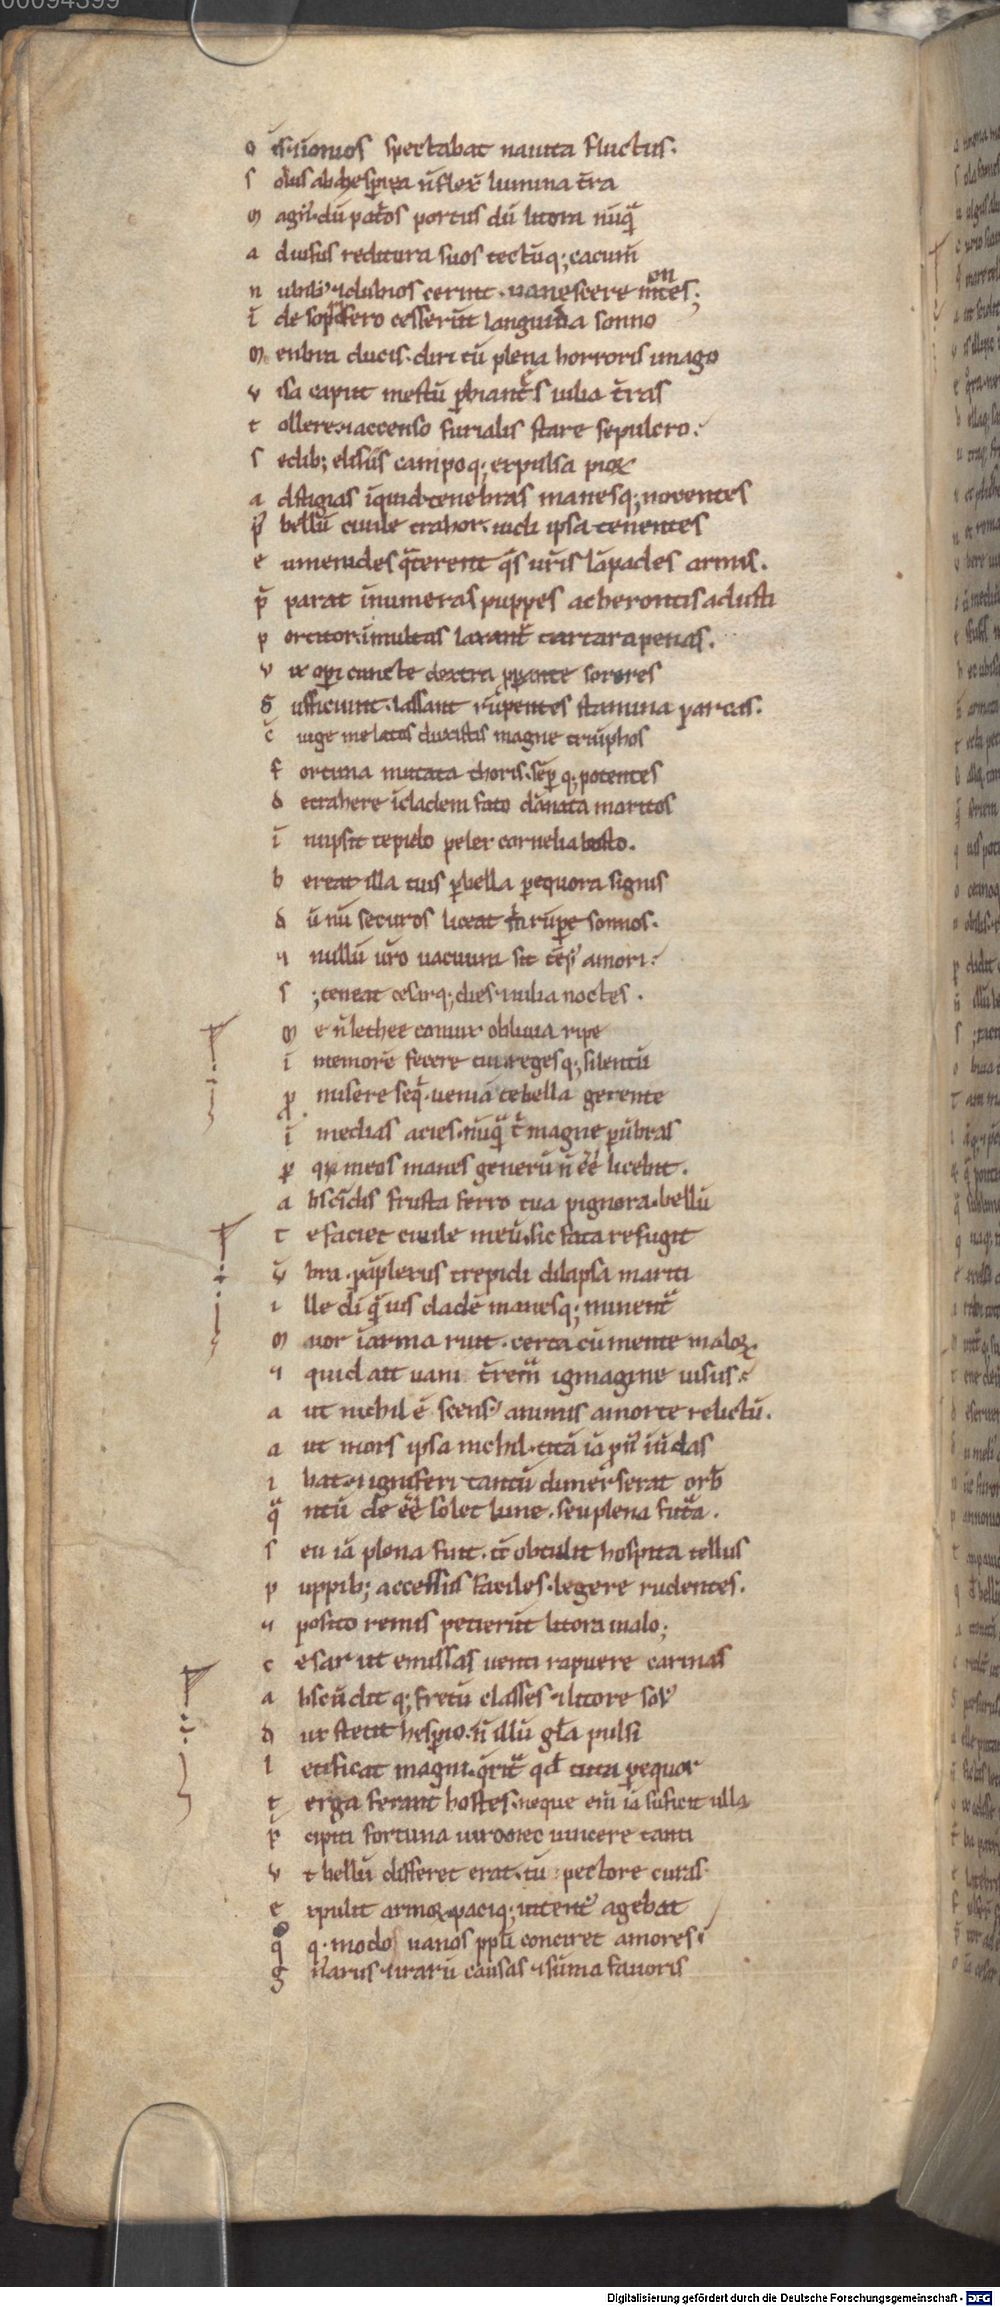 00094399
o īs iıonios spectabat nauita fluctus.
s olus ab hesp̄ia n̄ flex̄ lumina t̄ra
M agn̄. dū pat̄os portus dū litora nūq̄
a d uisus reditura suos tectūq; cacum̄
n ubib; ⁊ dubios cernit. uanescere mōtes;
on
i de soporifero cesserūt languida sonno
M enbra ducis. diri tū plena horroris imago
v isa caput mestū p̱ hiant̄s iulia t̄ras
t ollere. ⁊ accenso furialis stare sepulcro.
s edib; elisiis campoq; expulsa pioꝝ
a d stigias iquid tenebras manesq; nocentes
p̄ bellū ciuile trahor. uidi ipsa tenentes
e umenides q̄terent q̄s ur̄is lāpades armis.
p̄ parat inumeras puppes acherontis adusti
p ortitor. ī multas laxant̄ tartara penas.
v ix op̱i cuncte dextra p̱p̱ante sorores
s ufficiunt. lassant rūpentes stamina parcas.
c̄ iuge me letos duxistis magne triūphos
f ortuna mutata thoris. sēp̱ q; potentes
d etrahere ī cladem fato dānata maritos
i nupsit tepido pelex cornelia busto.
h ereat illa tuis p̱ bella p̱ equora signis
d ū n̄ securos liceat m̄ rūp̱e somnos.
⁊ nullū ur̄o uacuum sit tēp; amori.
s ; teneat cesarq; dies ⁊ iulia noctes.
M e n̄ lethee coniux obliuia ripe
i memorē fecere tui. regesq; silentū
p̱ misere seq̄. ueniā te bella gerente
i medias acies. nūq̄ t̄ magne p̱ ūbras
p̱ q; meos manes generū n̄ eē licebit.
a bscidis frusta ferro tua pignora. bellū
t e faciet ciuile meū. sic fata refugit
v̄ bra. p̱ āplexus trepidi dilapsa mariti
i lle dī q̄uis cladē manesq; minent̄
M aior ī arma ruit. certa cū mente maloꝝ
⁊ quid ait uani t̄rem̄ igmagine uisus.
a ut nichil ē sensꝰ animis a morte relictū.
a ut mors ipsa nichil. titā iā p̱nꝰ iūdas
i bat. ⁊ igniferi tantū dimerserat orb̄
q̄ ntū de eē solet lune. seu plena fut̄a.
s eu iā plena fuit. tc̄ obtulit hospita tellus
p uppib; accessus faciles. legere rudentes.
⁊ posito remis petierūt litora malo;
c esar ut emissas uenti rapuere carinas
a bscūdit q; fretū classes ⁊ litore solꝰ
d ux stetit hesp̱io. n̄ illū gl̄a pulsi
l etificat magni. q̄rit̄ qđ tuta p̱ equor
t erga ferant hostes. neque eni iā suficit ulla
p̄ cipiti fortuna uiro nec uincere tanti
v t bellū differet erat. tū pectore curas
e xpulit armoꝝ. paciq; intentꝰ agebat
q̄ q. modo uanos pp̱li conciret amores.
g n̄arus ⁊ iraru causas ⁊ sūma fauoris
Digitalisierung gefördert durch die Deutsche Forschungsgemeinschaft - DFG